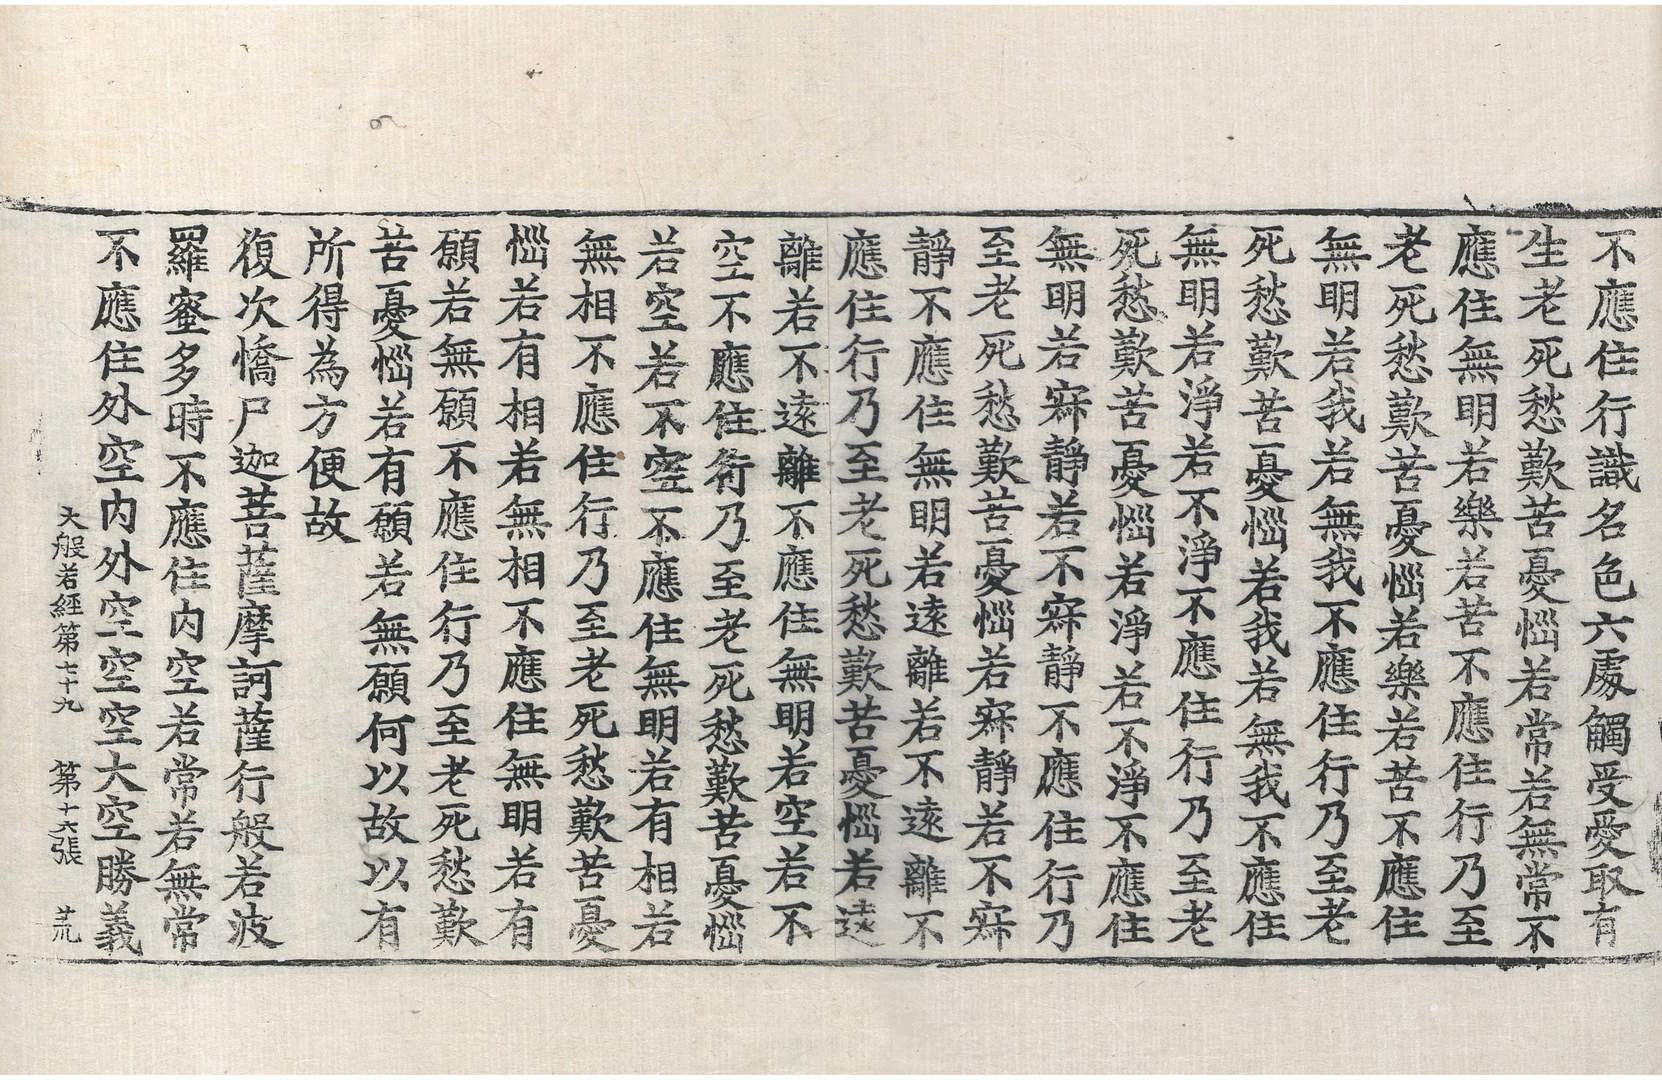 不應住行識名色六處觸受愛取有
生老死愁歎苦憂惱若常若無常不
應住無明若樂若苦不應住行乃至
老死愁歎苦憂惱若樂若苦不應住
無明若我若無我不應住行乃至老
死愁歎苦憂惱若我若無我不應住
無明若淨若不淨不應住行乃至老
死愁歎苦憂惱若淨若不淨不應住
無明若寂靜若不寂靜不應住行乃
至老死愁歎苦憂惱若寂靜若不寂
靜不應住無明若遠離若不遠離不
應住行乃至老死愁歎苦憂惱若遠
離若不遠離不應住無明若空若不
空不應住行乃至老死愁歎苦憂惱
若空若不空不應住無明若有相若
無相不應住行乃至老死愁歎苦憂
惱若有相若無相不應住無明若有
願若無願不應住行乃至老死愁歎
苦憂惱若有願若無願何以故以有
所得為方便故
復次憍尸迦菩薩摩訶薩行般若波
羅蜜多時不應住內空若常若無常
不應住外空內外空空空大空勝義
大般若經第七十九　第十六張　荒